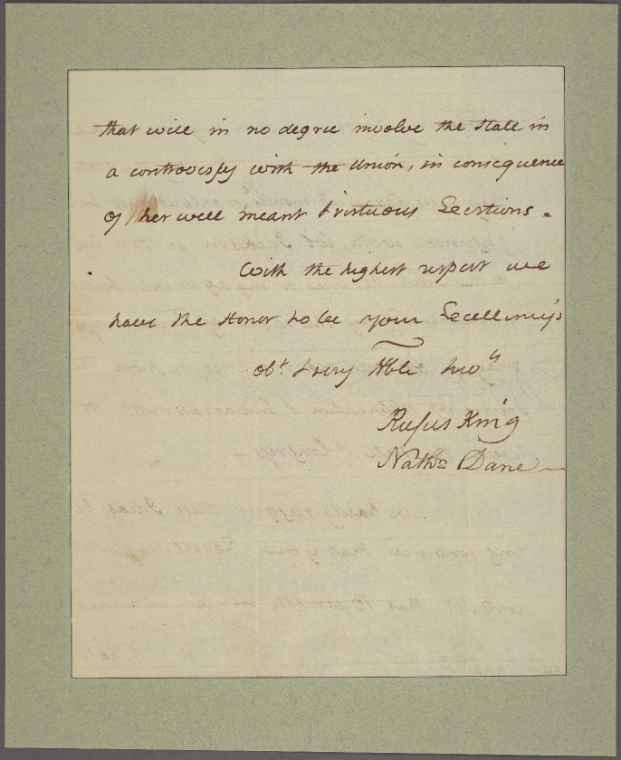 that will in no degree involve the State in
a controversy with the Union, in consequence
of her well meant & virtuous Exertions.
With the highest respect we
have the Honor to be your Excellency's
obt. & very Hble Servts
Rufus King
Nathn Dane